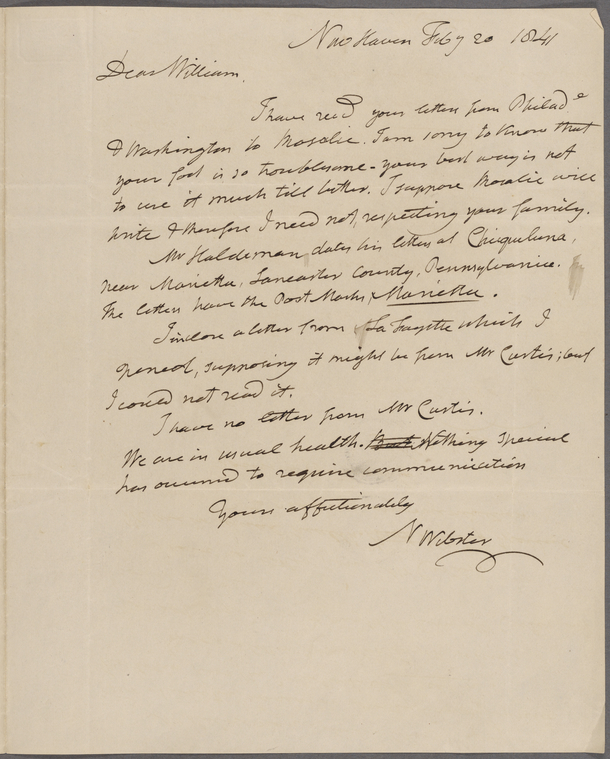 New Haven Feby 20 1841
Dear William,
I have recd your letters from Philade
& Washington to Rosalie. I am sorry to know that
your foot is so troublesome - your best way is not
to use it much till better. I suppose Rosalie will
write & therefore I need not, respecting your family.
Mr Haldeman dates his letters at Chiquiluna,
near Marietta, Lancaster County, Pennsylvania.
The letters have the Post Mark, Marietta.
I inclose a letter from La Fayette which I
opened, supposing it might be from Mr Curtis; but
I could not read it.
I have no letter from Mr Curtis.
We are in usual health. Nothing special
has occurred to require communication
Yours affectionately
N Webster